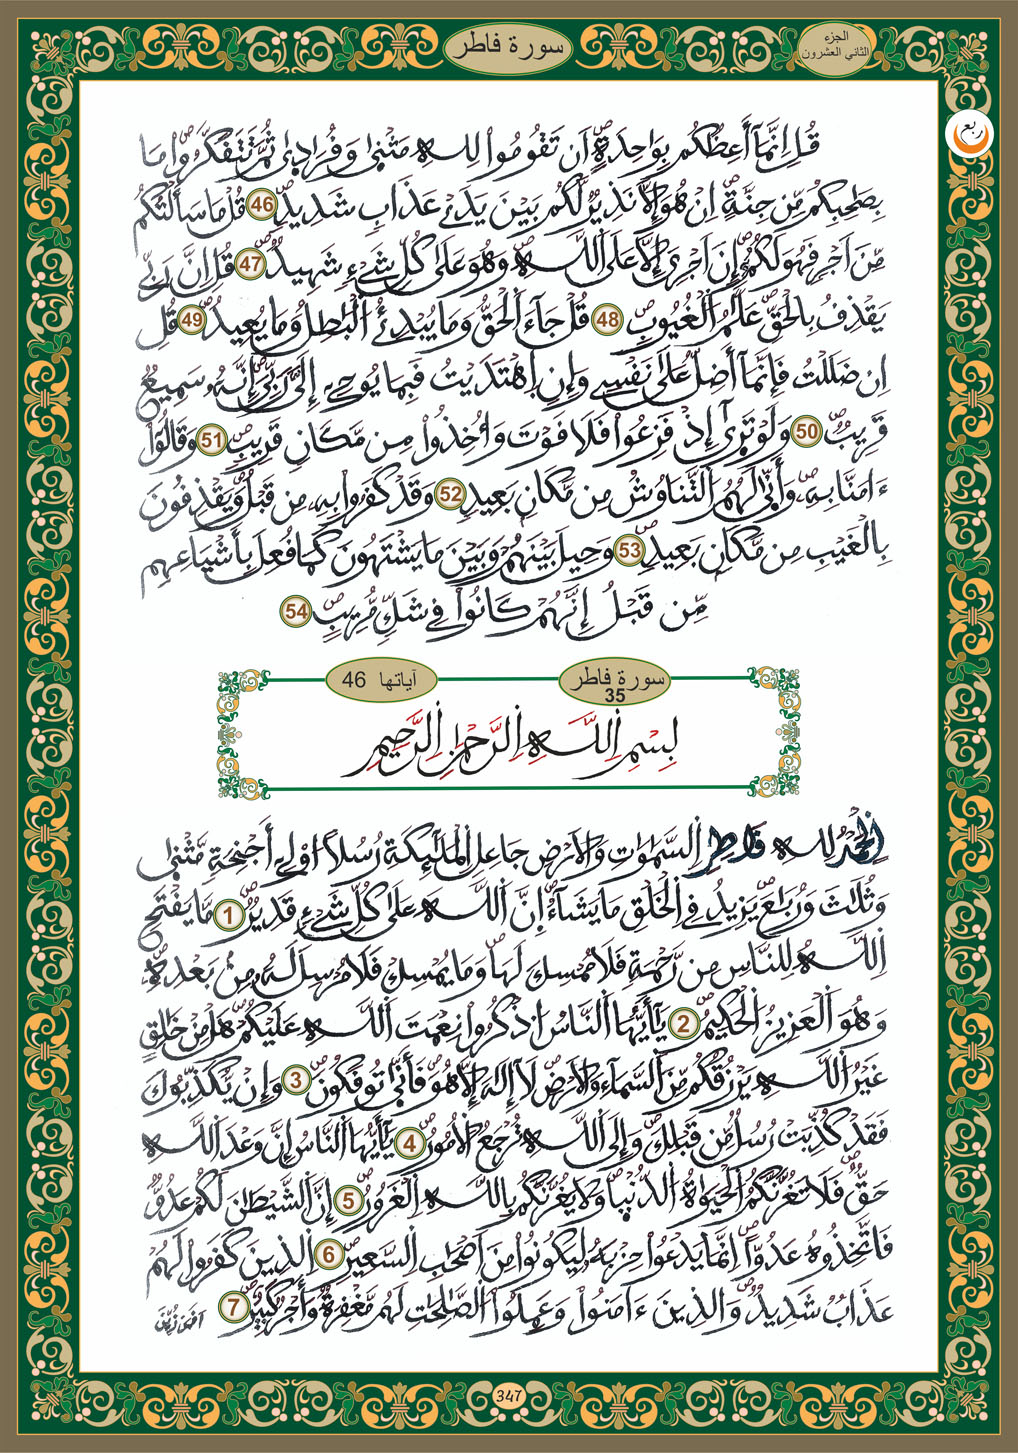 الجزء
الثاني العشرون
سورة فاطر
ربع
قُلِ اِنَّمَآ أَعِظُكُم بِوَاحِدَةٍ اَن تَقُومُواْ لِلهِ مَثْنۭىٰ وَفُرَٰدۭىٰ ثُمَّ تَتَفَكَّرُواْ مَا
بِصَٰحِبِكُم مِّن جِنَّةٍ اِنْ هُوَ إِلَّا نَذِيرٌ لَّكُم بَيْنَ يَدَےْ عَذَابٍ شَدِيدٍ 46 قُلْ مَا سَأَلْتُكُم
مِّنَ اَجْرٍ فَهُوَ لَكُمُ إِنَ اَجْرِيَ إِلَّا عَلَى اَللَّهِ وَهُوَ عَلَىٰ كُلِّ شَےْءٍ شَهِيدٌ 47 قُلِ انَّ رَبِّي
يَقْذِفُ بِالْحَقِّ عَلَّٰمُ الْغُيُوبِ 48 قُلْ جَآءَ اَلْحَقُّ وَمَا يُبْدِۓُ اَلْبَٰطِلُ وَمَا يُعِيدُ 49 قُلِ
اِن ضَلَلْتُ فَإِنَّمَآ أَضِلُّ عَلَىٰ نَفْسِےٓ وَإِنِ اِهْتَدَيْتُ فَبِمَا يُوحِےٓ إِلَيَّ رَبِّيَ إِنَّهُۥ سَمِيعٌ
قَرِيبٌ 50 وَلَوْ تَرٜىٰٓ إِذْ فَزِعُواْ فَلَا فَوْتَ وَأُخِذُواْ مِن مَّكَانٍ قَرِيبٍ 51 وَقَالُوٓاْ
ءَامَنَّا بِهِۦ وَأَنّٜىٰ لَهُمُ اُلتَّنَاوُشُ مِن مَّكَانٍ بَعِيدٍ 52 وَقَدْ كَفَرُواْ بِهِۦ مِن قَبْلُ وَيَقْذِفُونَ
بِالْغَيْبِ مِن مَّكَانٍ بَعِيدٍ 53 وَحِيلَ بَيْنَهُمْ وَبَيْنَ مَا يَشْتَهُونَ كَمَا فُعِلَ بِأَشْيَاعِهِم
مِّن قَبْلُ إِنَّهُمْ كَانُواْ فِے شَكٍّ مُّرِيبٍ 54
سورة فاطر
35
آياتها 46
بِسْمِ اِللَّهِ اِلرَّحْمَٰنِ اِلرَّحِيمِ
اِلْحَمْدُ لِلهِ فَاطِرِ اِلسَّمَٰوَٰتِ وَالَارْضِ جَاعِلِ اِلْمَلَٰٓئِكَةِ رُسُلًا اوْلِےٓ أَجْنِحَةٍ مَّثْنۭىٰ
وَثُلَٰثَ وَرُبَٰعَ يَزِيدُ فِے اِلْخَلْقِ مَا يَشَآءُ إِنَّ اَللَّهَ عَلَىٰ كُلِّ شَےْءٍ قَدِيرٌ 1 مَّا يَفْتَحِ
اِللَّهُ لِلنَّاسِ مِن رَّحْمَةٍ فَلَا مُمْسِكَ لَهَا وَمَا يُمْسِكْ فَلَا مُرْسِلَ لَهُۥ مِنۢ بَعْدِهِۦ
وَهُوَ اَلْعَزِيزُ اُلْحَكِيمُ 2 يَٰٓأَيُّهَا اَلنَّاسُ اُذْكُرُواْ نِعْمَتَ اَللَّهِ عَلَيْكُمْ هَلْ مِنْ خَٰلِقٍ
غَيْرُ اُللَّهِ يَرْزُقُكُم مِّنَ اَلسَّمَآءِ وَالَارْضِ لَآ إِلَٰهَ إِلَّا هُوَ فَأَنّٜىٰ تُوفَكُونَ 3 وَإِنْ يُّكَذِّبُوكَ
فَقَدْ كُذِّبَتْ رُسُلٌ مِّن قَبْلِكَ وَإِلَى اَللَّهِ تُرْجَعُ اُلُامُورُ 4 يَٰٓأَيُّهَا اَلنَّاسُ إِنَّ وَعْدَ اَللَّهِ
حَقٌّ فَلَا تَغُرَّنَّكُمُ اُلْحَيَوٰةُ اُلدُّنْيۭا وَلَا يَغُرَّنَّكُم بِاللَّهِ اِلْغَرُورُ 5 إِنَّ اَلشَّيْطَٰنَ لَكُمْ عَدُوٌّ
فَاتَّخِذُوهُ عَدُوًّا اِنَّمَا يَدْعُواْ حِزْبَهُۥ لِيَكُونُواْ مِنَ اَصْحَٰبِ اِلسَّعِيرِ 6 اِلذِينَ كَفَرُواْ لَهُمْ
عَذَابٌ شَدِيدٌ وَالذِينَ ءَامَنُواْ وَعَمِلُواْ اُلصَّٰلِحَٰتِ لَهُم مَّغْفِرَةٌ وَأَجْرٌ كَبِيرٌ 7
347